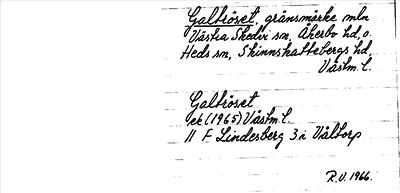 Galtröset, gränsmärke mln
Västra Skedvi sn, Åkerbo hd, o.
Heds sn, Skinnskattebergs hd,
Västm. l.
Galtröset
ek (1965) Västm. l.
11 F Lindesberg 3 i Våltorp
R.V. 1966.